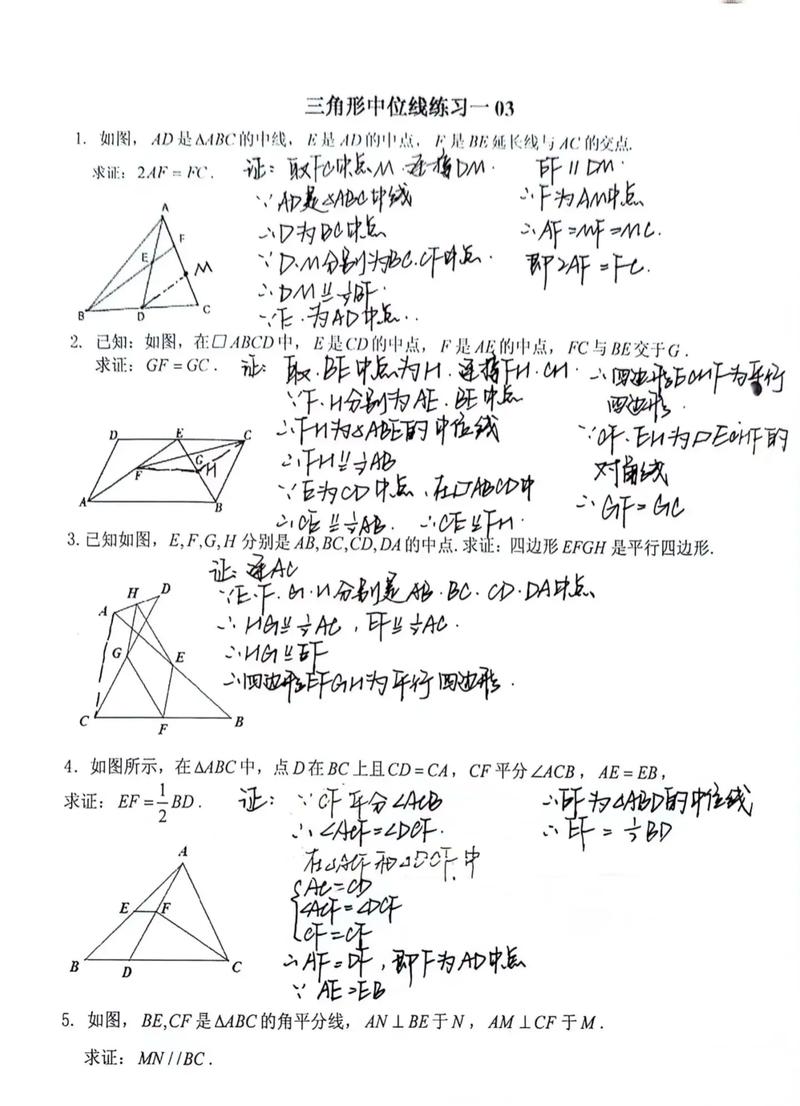 三角形中位线练习一 03
1. 如图，AD 是 ΔABC 的中线，E 是 AD 的中点，F 是 BE 延长线与 AC 的交点.
求证：2AF = FC .
证：取FC中点M.连接DM.
∵AD是△ABC中线
∴D为BC中点
∵D.M分别为BC.CF中点.
∴DM∥=½BF.
∵E.为AD中点..
EF∥DM.
∴F为AM中点
∴AF=MF=MC.
即2AF=FC.
A
F
E
M
B
D
C
2. 已知：如图，在□ABCD 中，E 是 CD 的中点，F 是 AE 的中点，FC 与 BE 交于 G .
求证：GF = GC .
证：取.BE中点为H.连接FH.CH.
∵F.H分别为AE.BE中点
∴FH为△ABE的中位线
∴FH∥=½AB
∵E为CD中点.在□ABCD中
∴CE∥=½AB. ∴CE∥=FH.
∴四边形ECHF为平行
四边形.
∵CF.EH为□ECHF的
对角线
∴GF=GC
D
E
C
G
F
H
A
B
3. 已知如图，E,F,G,H 分别是 AB,BC,CD,DA 的中点.求证：四边形 EFGH 是平行四边形.
证：连AC
∵E.F.G.H分别是AB.BC.CD.DA中点
∴HG∥=½AC，EF∥=½AC.
∴HG∥=EF
∴四边形EFGH为平行四边形.
H
D
A
G
E
C
F
B
4. 如图所示，在 ΔABC 中，点 D 在 BC 上且 CD = CA，CF 平分 ∠ACB，AE = EB，
求证：EF = 1/2 BD .
证：∵CF平分∠ACB
∴∠ACF=∠DCF.
在△ACF和△DCF中
{AC=CD
∠ACF=∠DCF
CF=CF
∴AF=DF，即F为AD中点
∵AE=EB
∴EF为△ABD的中位线
∴EF=½BD
A
E
F
B
D
C
5. 如图，BE,CF 是 ΔABC 的角平分线，AN ⊥ BE 于 N，AM ⊥ CF 于 M .
求证：MN // BC .